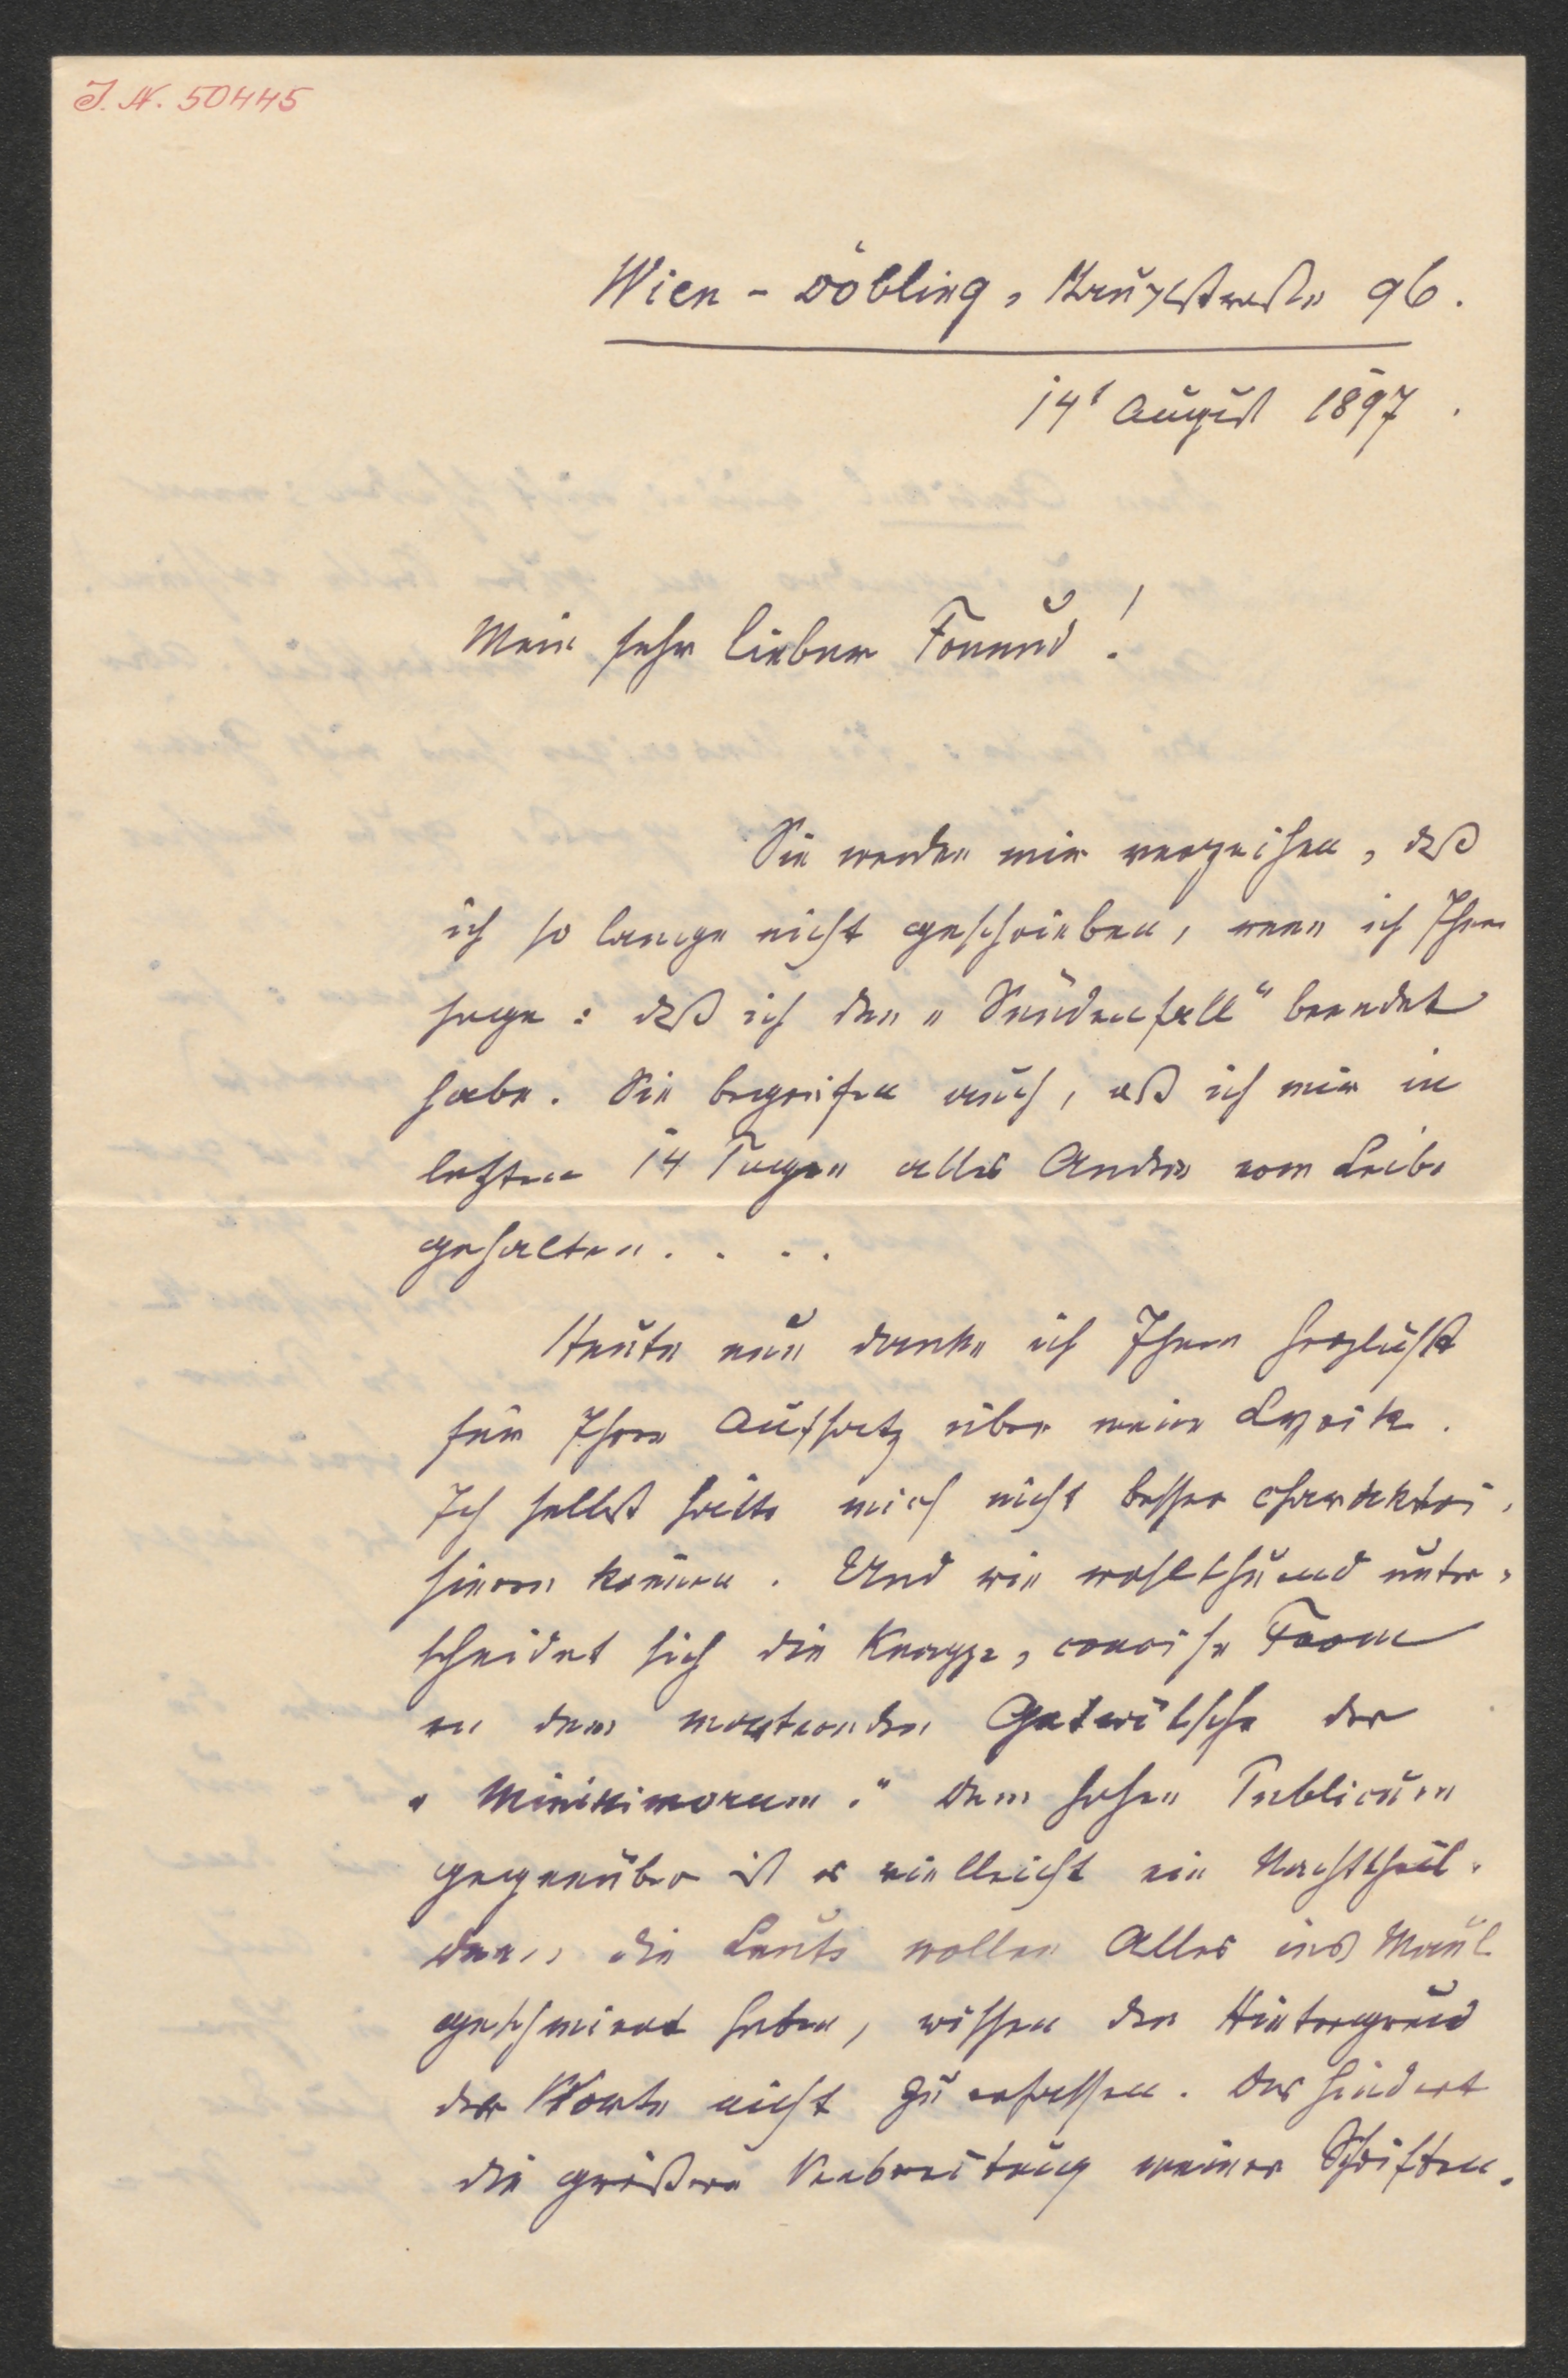 J. N. 50445
Wien - Döbling, Kreuzlstraße 96.
14t August 1897.
Mein sehr lieber Freund!
Sie werden mir verzeihen, daß
ich so lange nicht geschrieben, wenn ich Ihnen
sage: daß ich den „Sündenfall“ beendet
habe. Sie begreifen auch, daß ich mir in
letzten 14 Tagen alles Andre vom Leibe
gehalten. . . .
Heute nun danke ich Ihnen herzlichst
für Ihren Aufsatz über meine Lyrik.
Ich selbst hätte mich nicht besser charakteri-
sieren können. Und wie wohlthuend unter-
scheidet sich die knappe, concise Form
von dem Gewölke der
„Minimorum.“ Dem hohen Publicum
gegenüber ist es vielleicht ein Nachtheil,
denn die Leute wollen Alles ins Maul
geschmiert haben, wissen den Hintergrund
der Worte nicht zu erfassen. Das hindert
die größere Verbreitung meiner Schriften.